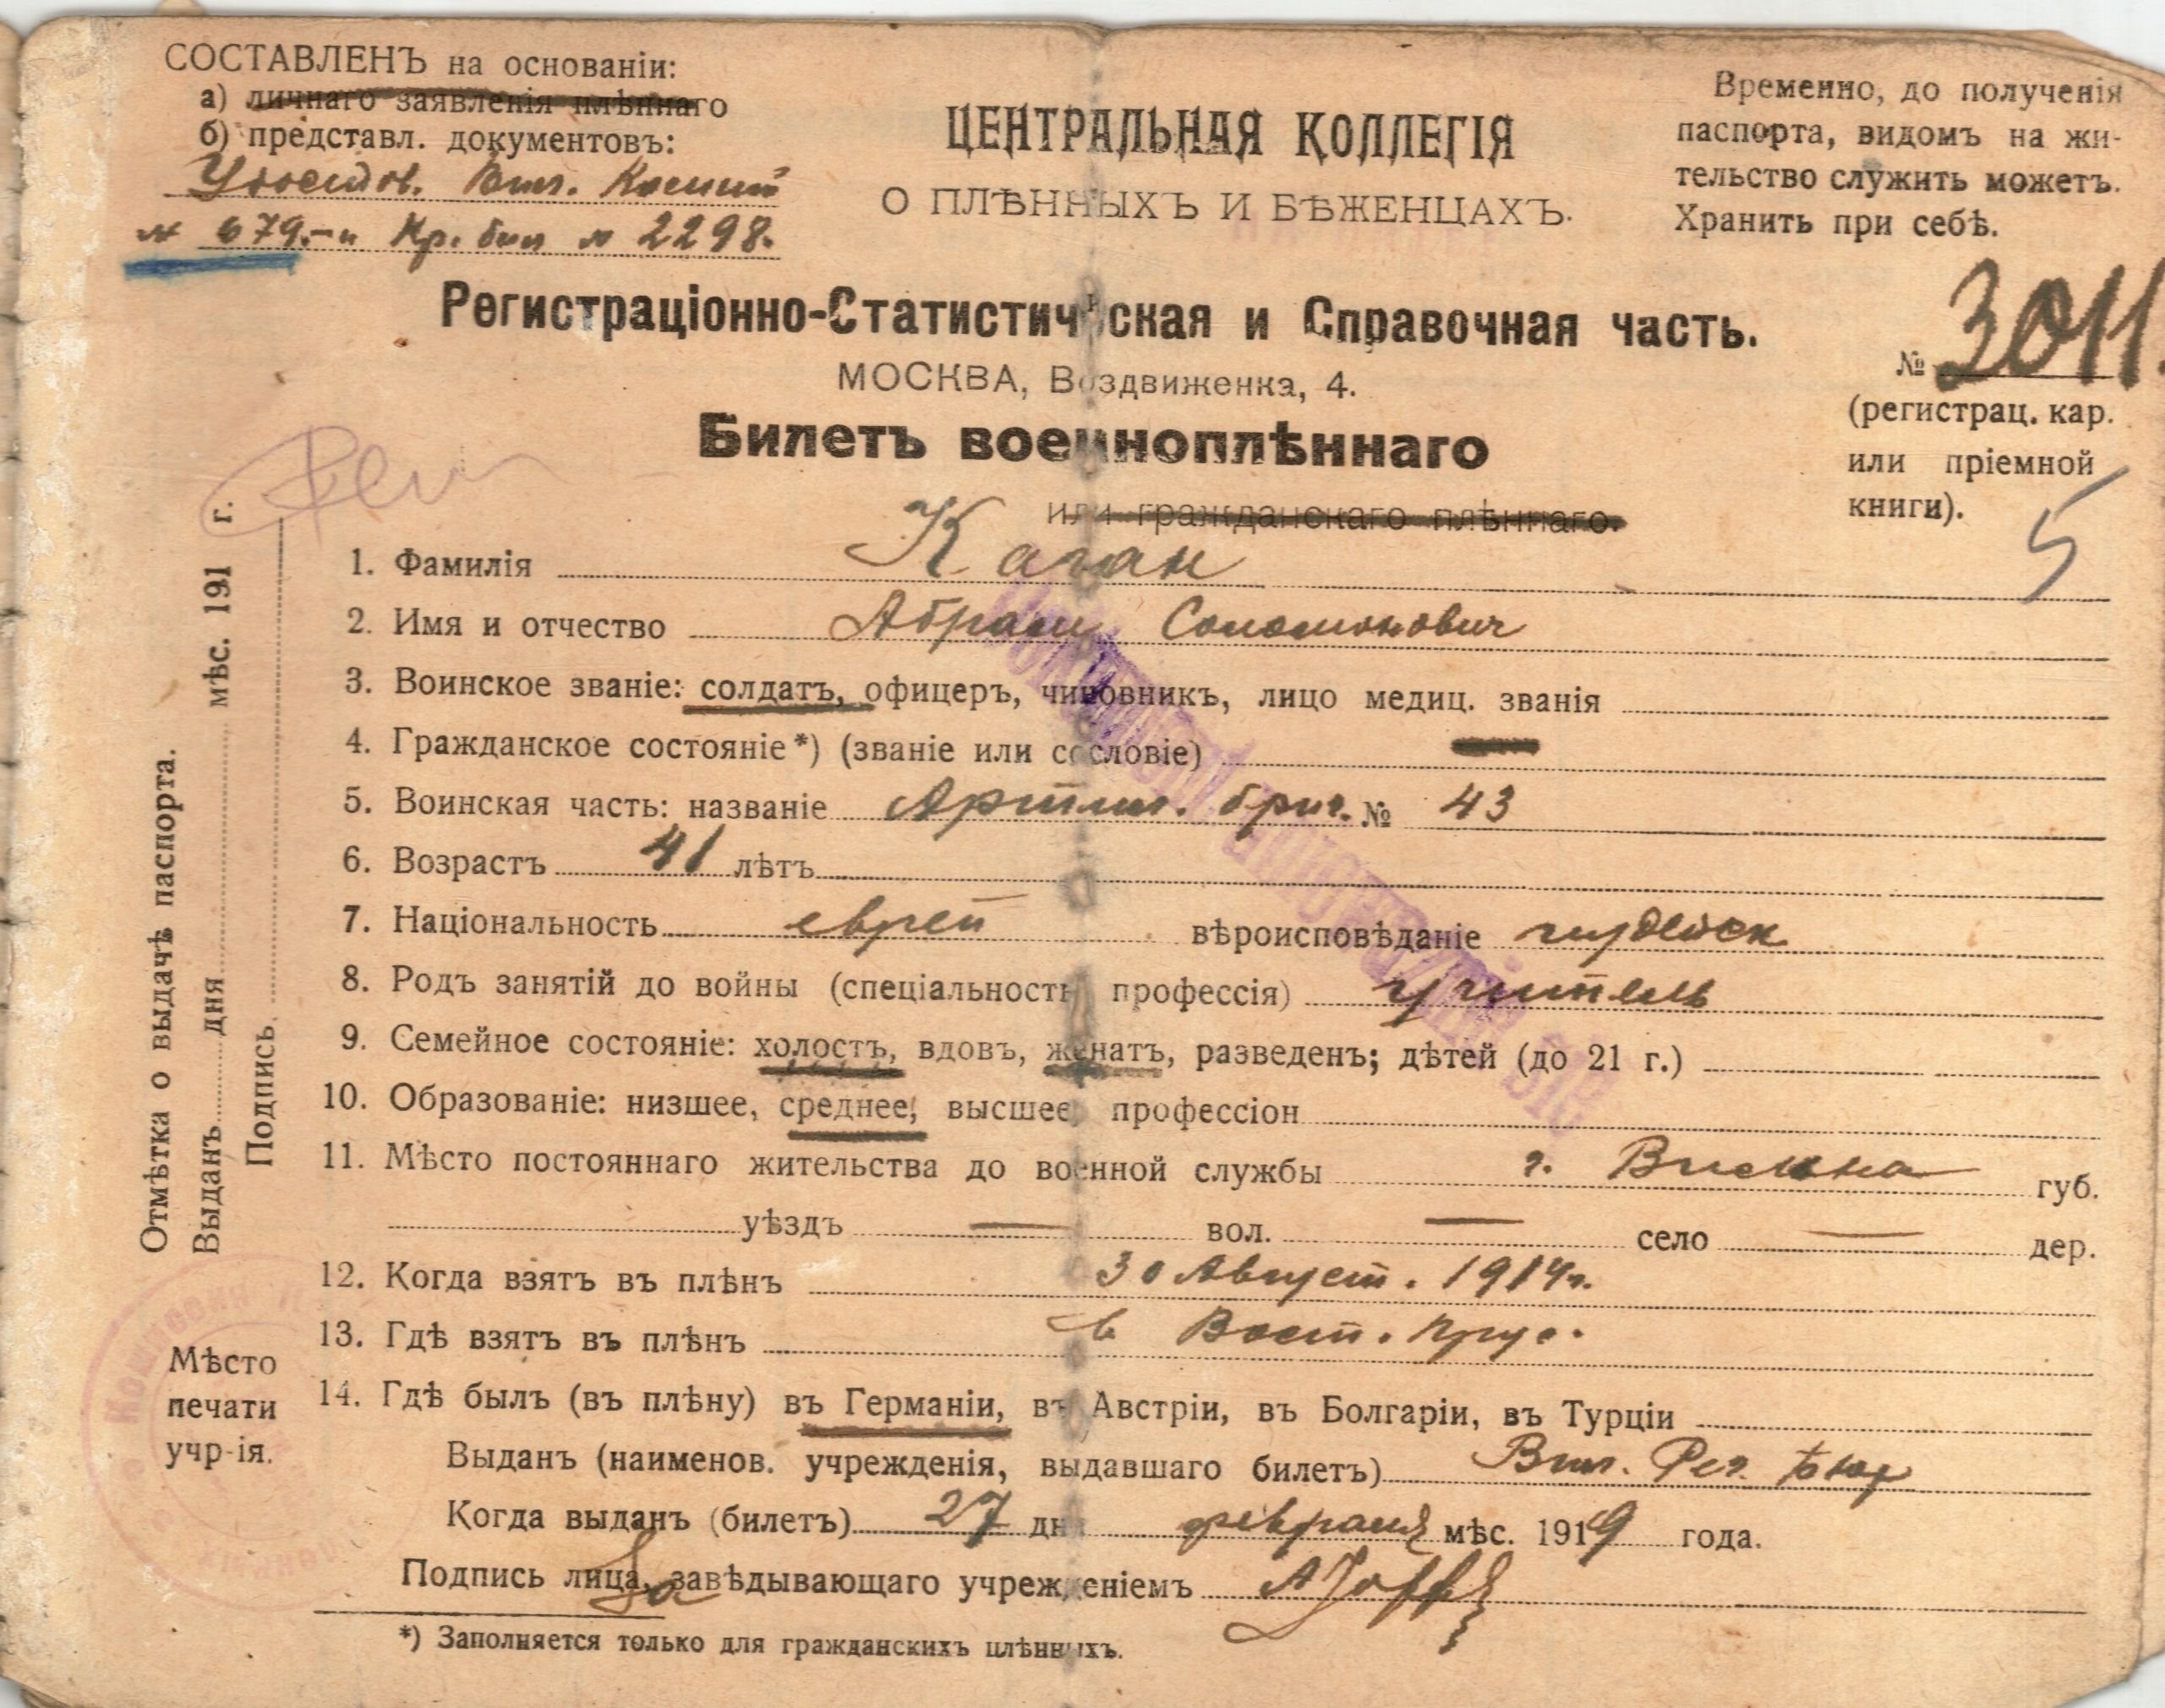 СОСТАВЛЕНЪ на основаніи:
а) личнаго заявленія плѣннаго
б) представл. документовъ:
Удостов. Вил.
№ 679.-и Пр. бил № 2298.
ЦЕНТРАЛЬНАЯ КОЛЛЕГІЯ
О ПЛѢННЫХЪ И БѢЖЕНЦАХЪ.
Временно, до полученія
паспорта, видомъ на жи-
тельство служить можетъ.
Хранить при себѣ.
Регистраціонно-Статистическая и Справочная часть.
МОСКВА, Воздвиженка, 4.
№ 3011.
(регистрац. кар.
или пріемной
книги).
5
Билетъ военноплѣннаго
или гражданскаго плѣннаго.
1. Фамилія Каган
2. Имя и отчество Абрам Соломонович
3. Воинское званіе: солдатъ, офицеръ, чиновникъ, лицо медиц. званія
4. Гражданское состояніе*) (званіе или сословіе)
5. Воинская часть: названіе Артил. бриг. № 43
6. Возрастъ 41 лѣтъ
7. Національность еврей вѣроисповѣданіе иудейск
8. Родъ занятій до войны (спеціальность, профессія) учитель
9. Семейное состояніе: холостъ, вдовъ, женатъ, разведенъ; дѣтей (до 21 г.)
10. Образованіе: низшее, среднее, высшее, профессіон
11. Мѣсто постояннаго жительства до военной службы г. Вильна губ.
уѣздъ — вол. — село — дер.
12. Когда взятъ въ плѣнъ 30 Август. 1914 г.
13. Гдѣ взятъ въ плѣнъ в Вост. Прус.
14. Гдѣ былъ (въ плѣну) въ Германіи, въ Австріи, въ Болгаріи, въ Турціи
Выданъ (наименов. учрежденія, выдавшаго билетъ) Вил. Рег. Бюр
Когда выданъ (билетъ) 27 дня февраля мѣс. 1919 года.
Подпись лица, завѣдывающаго учрежденіемъ
*) Заполняется только для гражданскихъ плѣнныхъ.
Отмѣтка о выдачѣ паспорта.
Выданъ дня мѣс. 191 г.
Подпись
Мѣсто
печати
учр-ія.